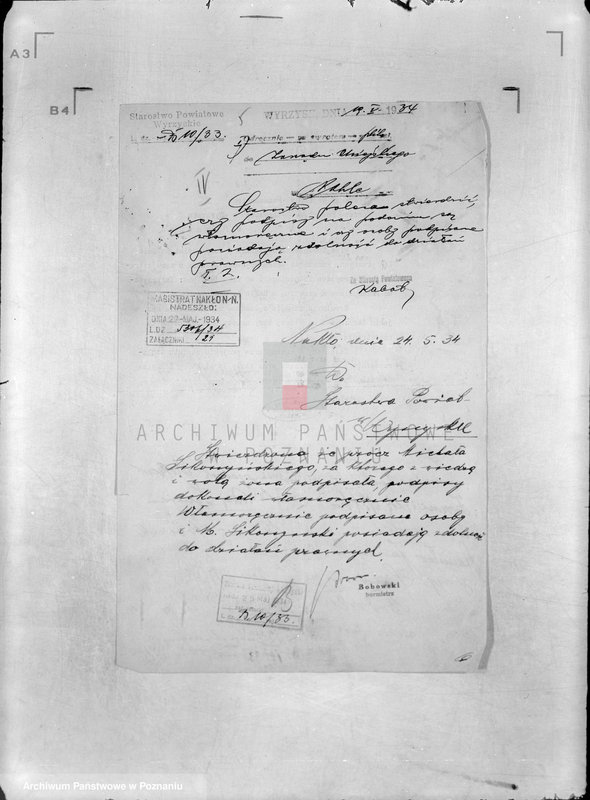 A3
B4
Starostwo Powiatowe
Wyrzyskie
L. dz. 10/33.
WYRZYSK, DNIA 19. V. 1934
do Zarządu Miejskiego
w Nakle
Starostwo poleca stwierdzić,
czy podpisy na podaniu są
własnoręczne i czy osoby podpisane
posiadają zdolność do działań
prawnych.
Za Starostę Powiatowego
MAGISTRAT NAKŁO N/N.
NADESZŁO:
DNIA 22-MAJ.-1934
L.DZ. 34
ZAŁĄCZNI 21
Nakło dnia 24. 5. 34
Do
Starostwa Powiat
Wyrzysk
ARCHIWUM PAŃSTWOWE
W POZNANIU
Stwierdzono że prócz Michała
Sikorzyńskiego, za którego z wiedzą
i wolą żona podpisała, podpisy
dokonali własnoręcznie
Własnoręcznie podpisane osoby
i M. Sikorzyński posiadają zdolność
do działań prawnych.
Bobowski
burmistrz
10/33.
Archiwum Państwowe w Poznaniu